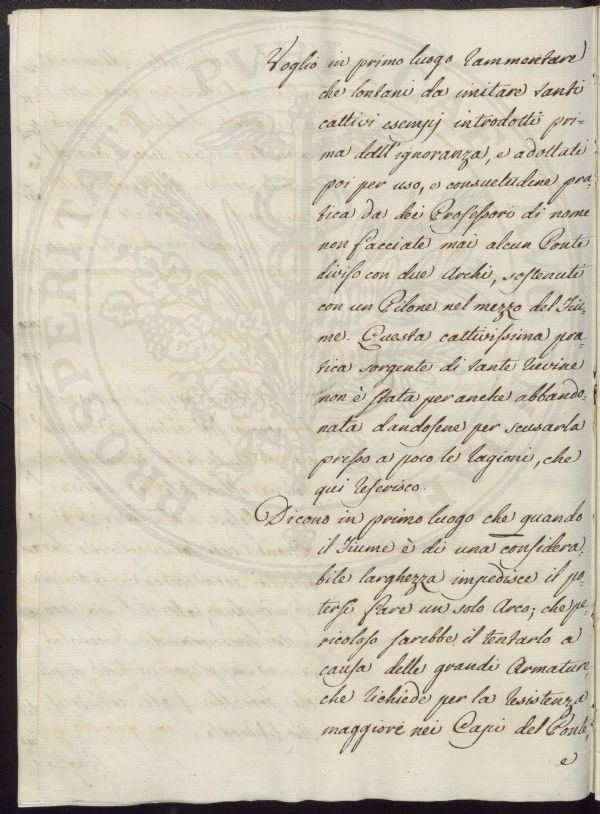 Voglio in primo luogo rammentare
che lontani da imitare tanti
cattivi esempij introdotti pri-
ma dall'ignoranza, e adottati
poi per uso, e consuetudine pra-
tica da dei Professori di nome
non facciate mai alcun Ponte
diviso con due Archi, sostenuti
con un Pilone nel mezzo del Fiu-
me. Questa cattivissima pra-
tica sorgente di tante ruvine
non è stata per anche abbando-
nata dandosene per scusarla
presso a poco le ragioni, che
qui referisco.
Dicono in primo luogo che quando
il Fiume è di una considera-
bile larghezza impedisce il po-
tersi fare un solo Arco; che pe-
ricoloso sarebbe il tentarlo a
causa delle grandi Armature,
che richiede per la resistenza
maggiore nei Capi del Ponte,
e
PROSPERITATI PUBLICAE